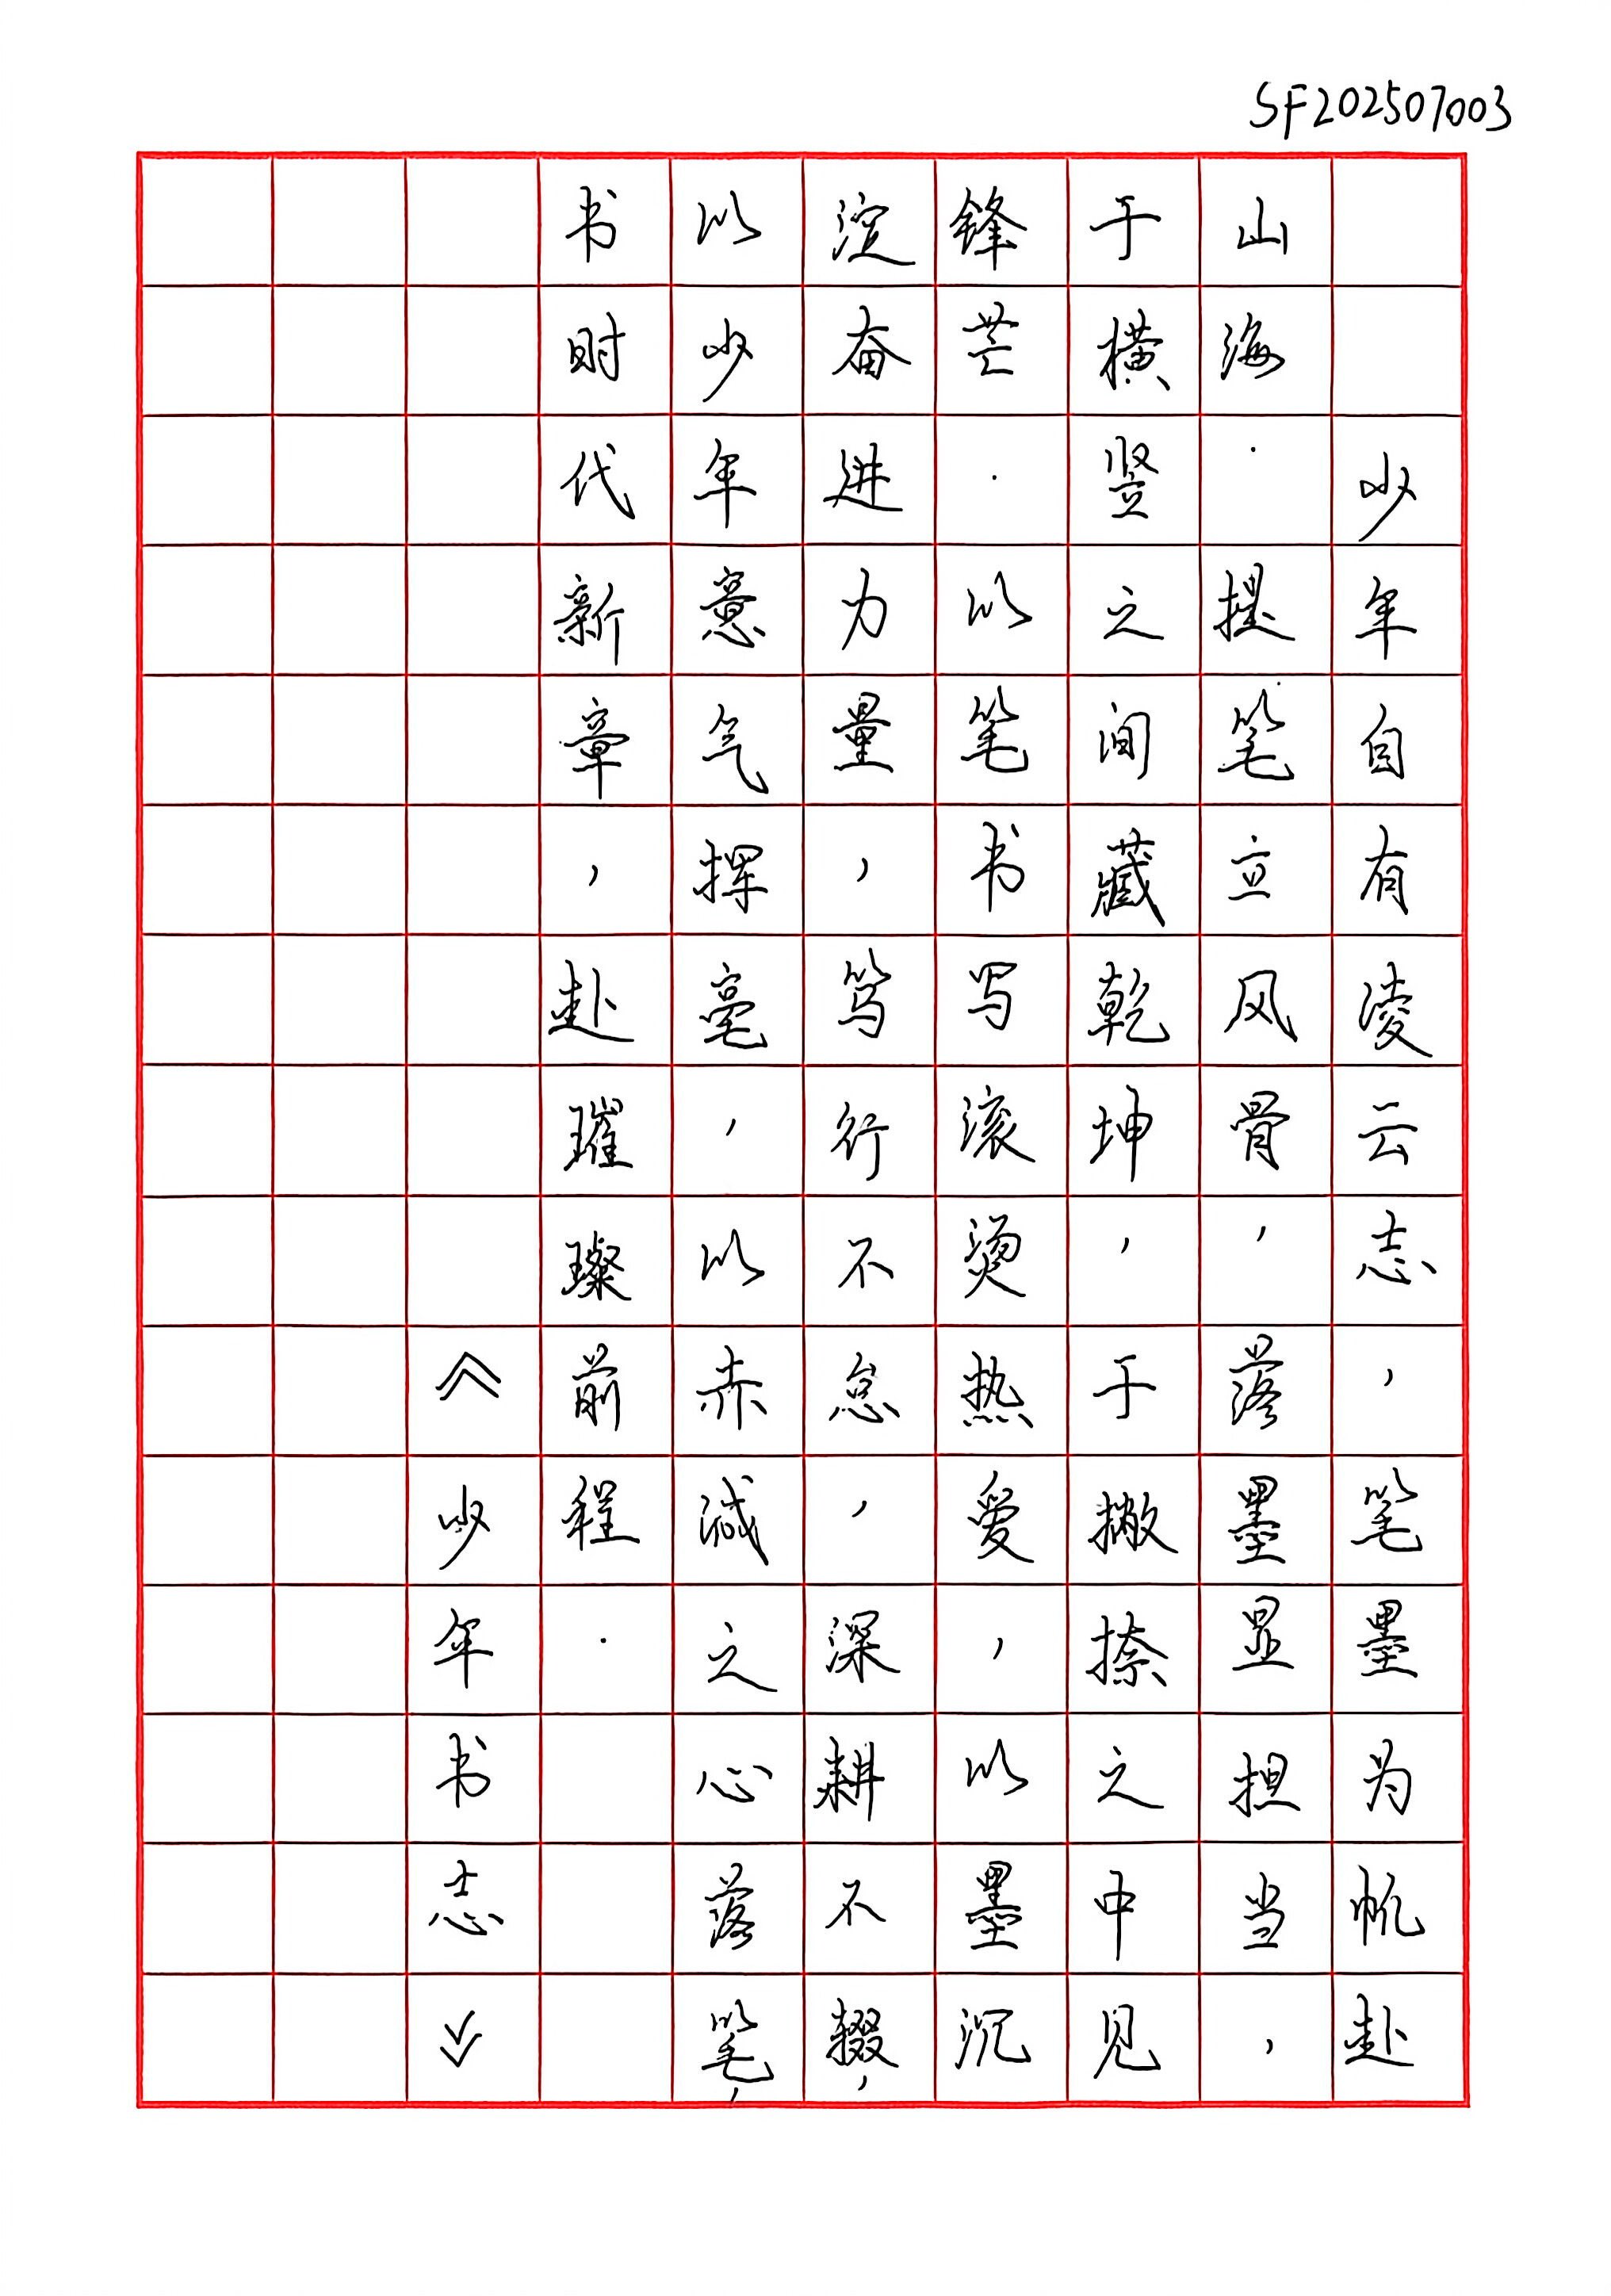 SF202507003
少年自有凌云志，笔墨为帆赴
山海.提笔立风骨，落墨显担当，
于横竖之间藏乾坤，于撇捺之中见
锋芒.以笔书写滚烫热爱，以墨沉
淀奋进力量，笃行不怠，深耕不辍，
以少年意气挥毫，以赤诚之心落笔，
书时代新章，赴璀璨前程.
《少年书志》